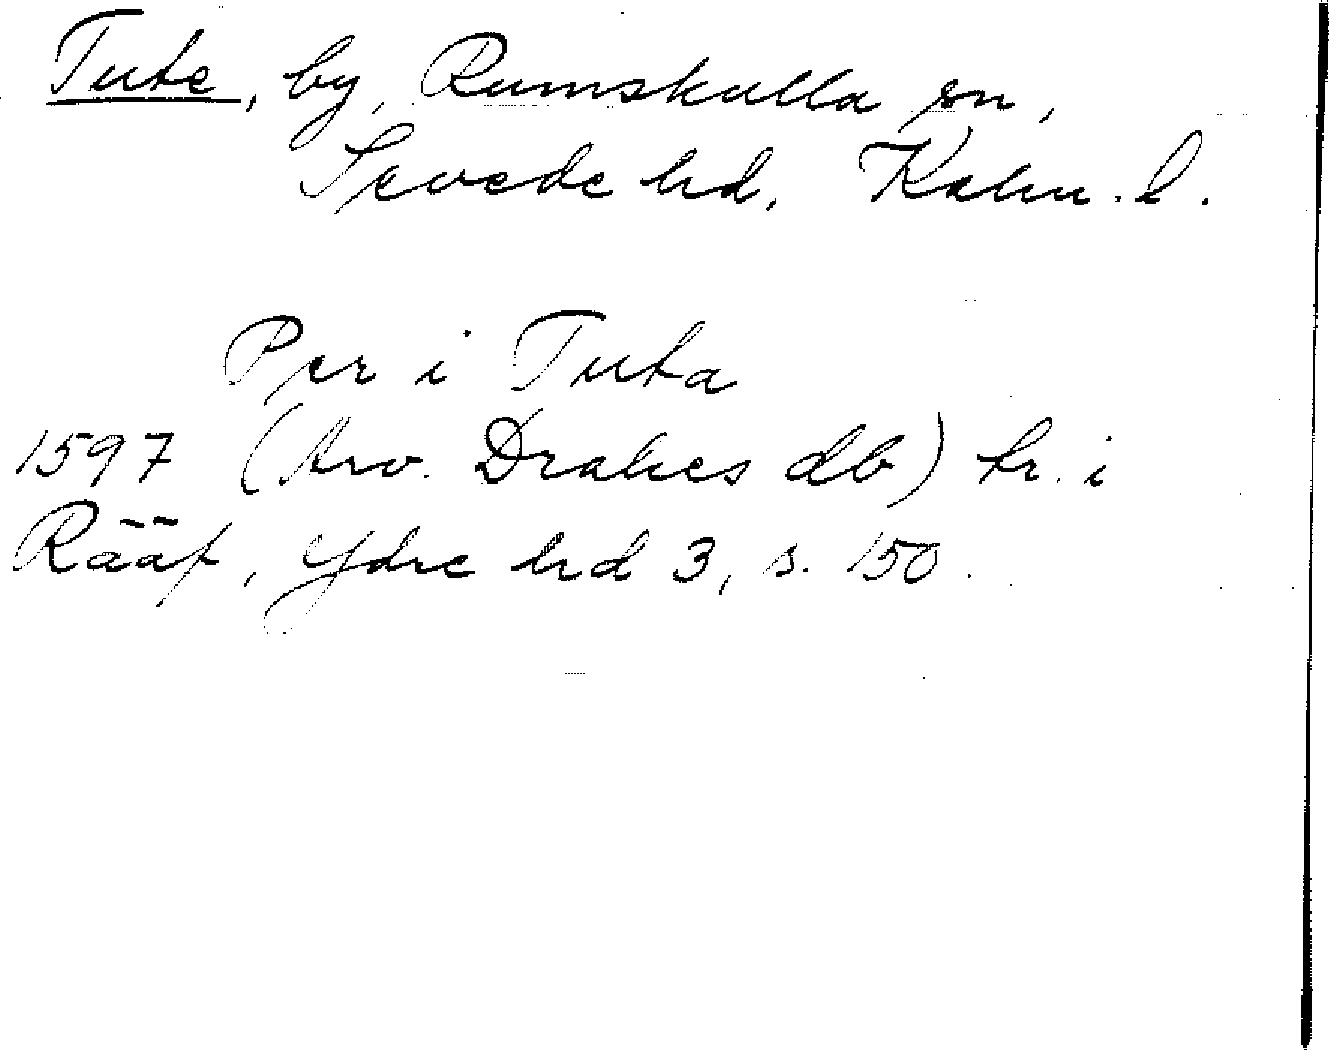 Tute, by, Rumskulla sn,
Sevede hd, Kalm. l.
Per i Tuta
1597 (Arv. Drakes db) tr. i
Rääf, Ydre hd 3, s. 150.